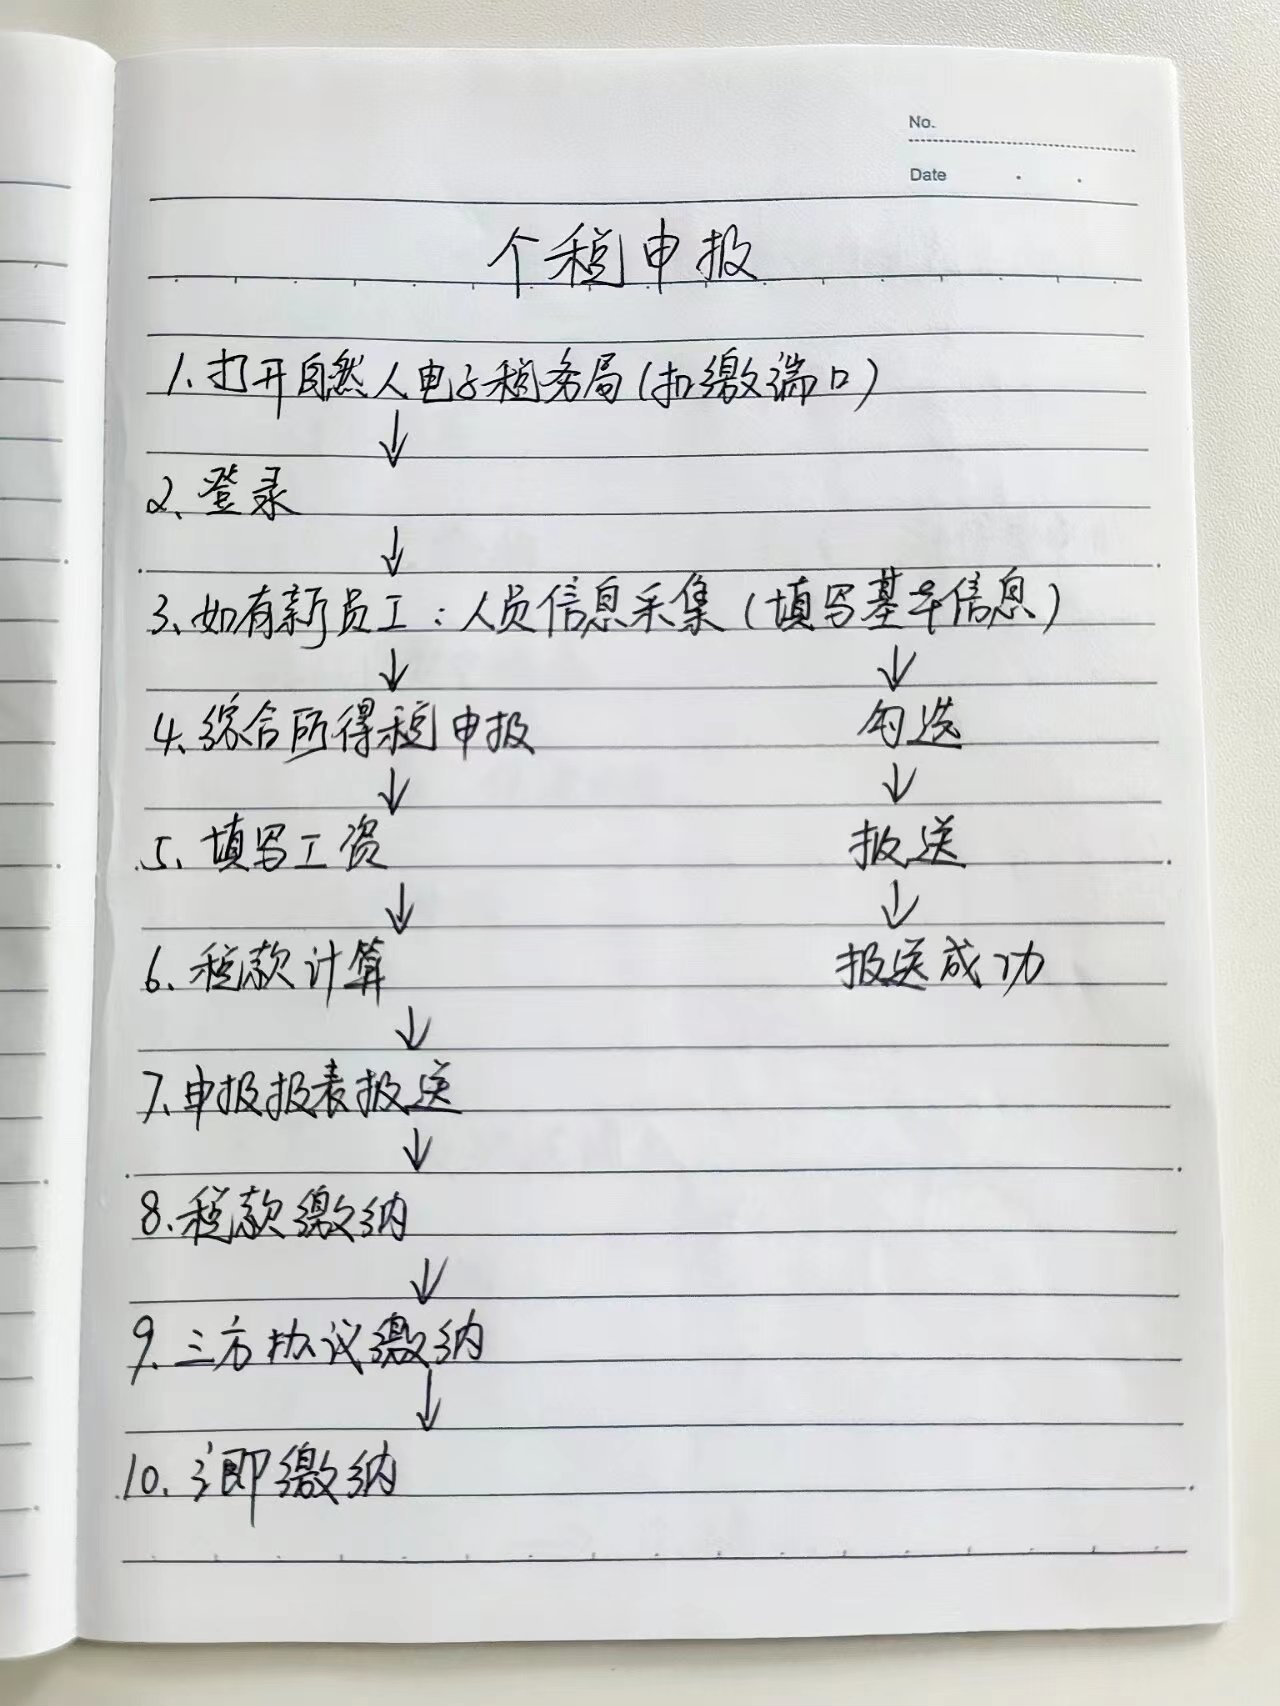 No.
Date
个税申报
1.打开自然人电子税务局(扣缴端口)
↓
2、登录
↓
3、如有新员工：人员信息采集(填写基本信息)
↓ ↓
4、综合所得税申报 勾选
↓ ↓
5、填写工资 报送
↓ ↓
6、税款计算 报送成功
↓
7、申报报表报送
↓
8.税款缴纳
↓
9.三方协议缴纳
↓
10.立即缴纳